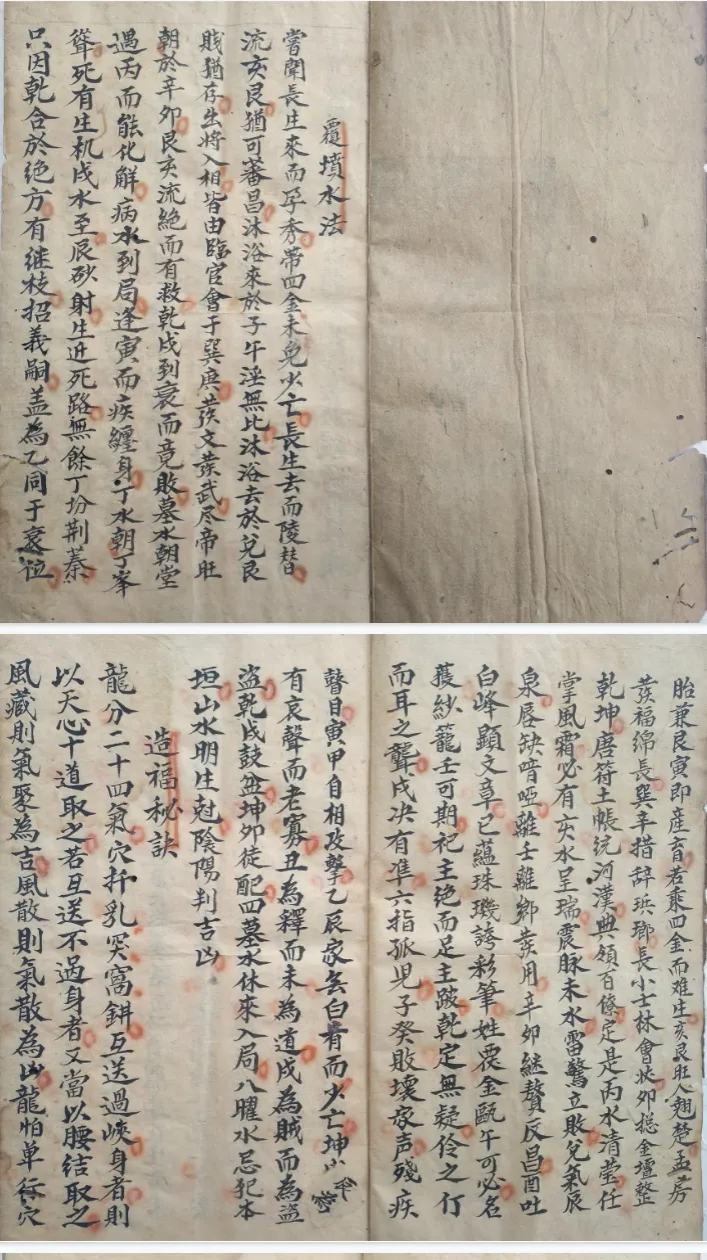 覆墳水法
嘗聞長生來而孕秀帶四金未免少亡長生去而陵替
流亥艮猶可蕃昌沐浴來於子午淫無比沐浴去於兌艮
賎猶存出將入相皆由臨官會于巽庚葂文葂武尽帝旺
朝於辛卯艮亥流絕而有救乾戍到衰而竟敗墓水朝堂
遇丙而能化解病水到局逢寅而疾纏身丁水朝丁峯
聳死有生机戍水至辰砂射生进死路無餘丁坋荆蓁
只因乾合於绝方有继枝招義嗣盖為乙同于衰位
胎兼艮寅即産畜若乘四金而难生亥艮旺人翹楚孟房
發福綿長巽辛措辭珎瑯長小士林會状卯摠金壇整
乾坤唐符土帳统河漢典領百僚定是丙水清瑩任
掌風霜必有亥水呈瑞震脉未水雷驚立敗兌氣辰
泉唇缺喑啞離壬離鄉發用辛卯継贅反昌酉吐
白峰顯文章已蘊珠璣誇彩筆姓覆金甌午可必名
蒦紗籠壬可期祀主绝而足主跛乾定無疑伶之仃
而耳之聾戍决有凖六指孤児子癸敗壊家声殘疾
瞽目寅甲自相攻擊乙辰家無白眚而少亡坤山
有哀聲而老寡丑為釋而未為道戍為賊而為盜
盜乾戍鼓盆坤卯徒配四墓水休來入局八曜水忌犯本
垣山水明生尅陰陽判吉凶
造福秘訣
龍分二十四氣穴扦乳突窩鉗互送過峽身者則
以天心十道取之若互送不過身者又當以腰结取之
風藏則氣聚為吉風散則氣散為凶龍怕单行穴